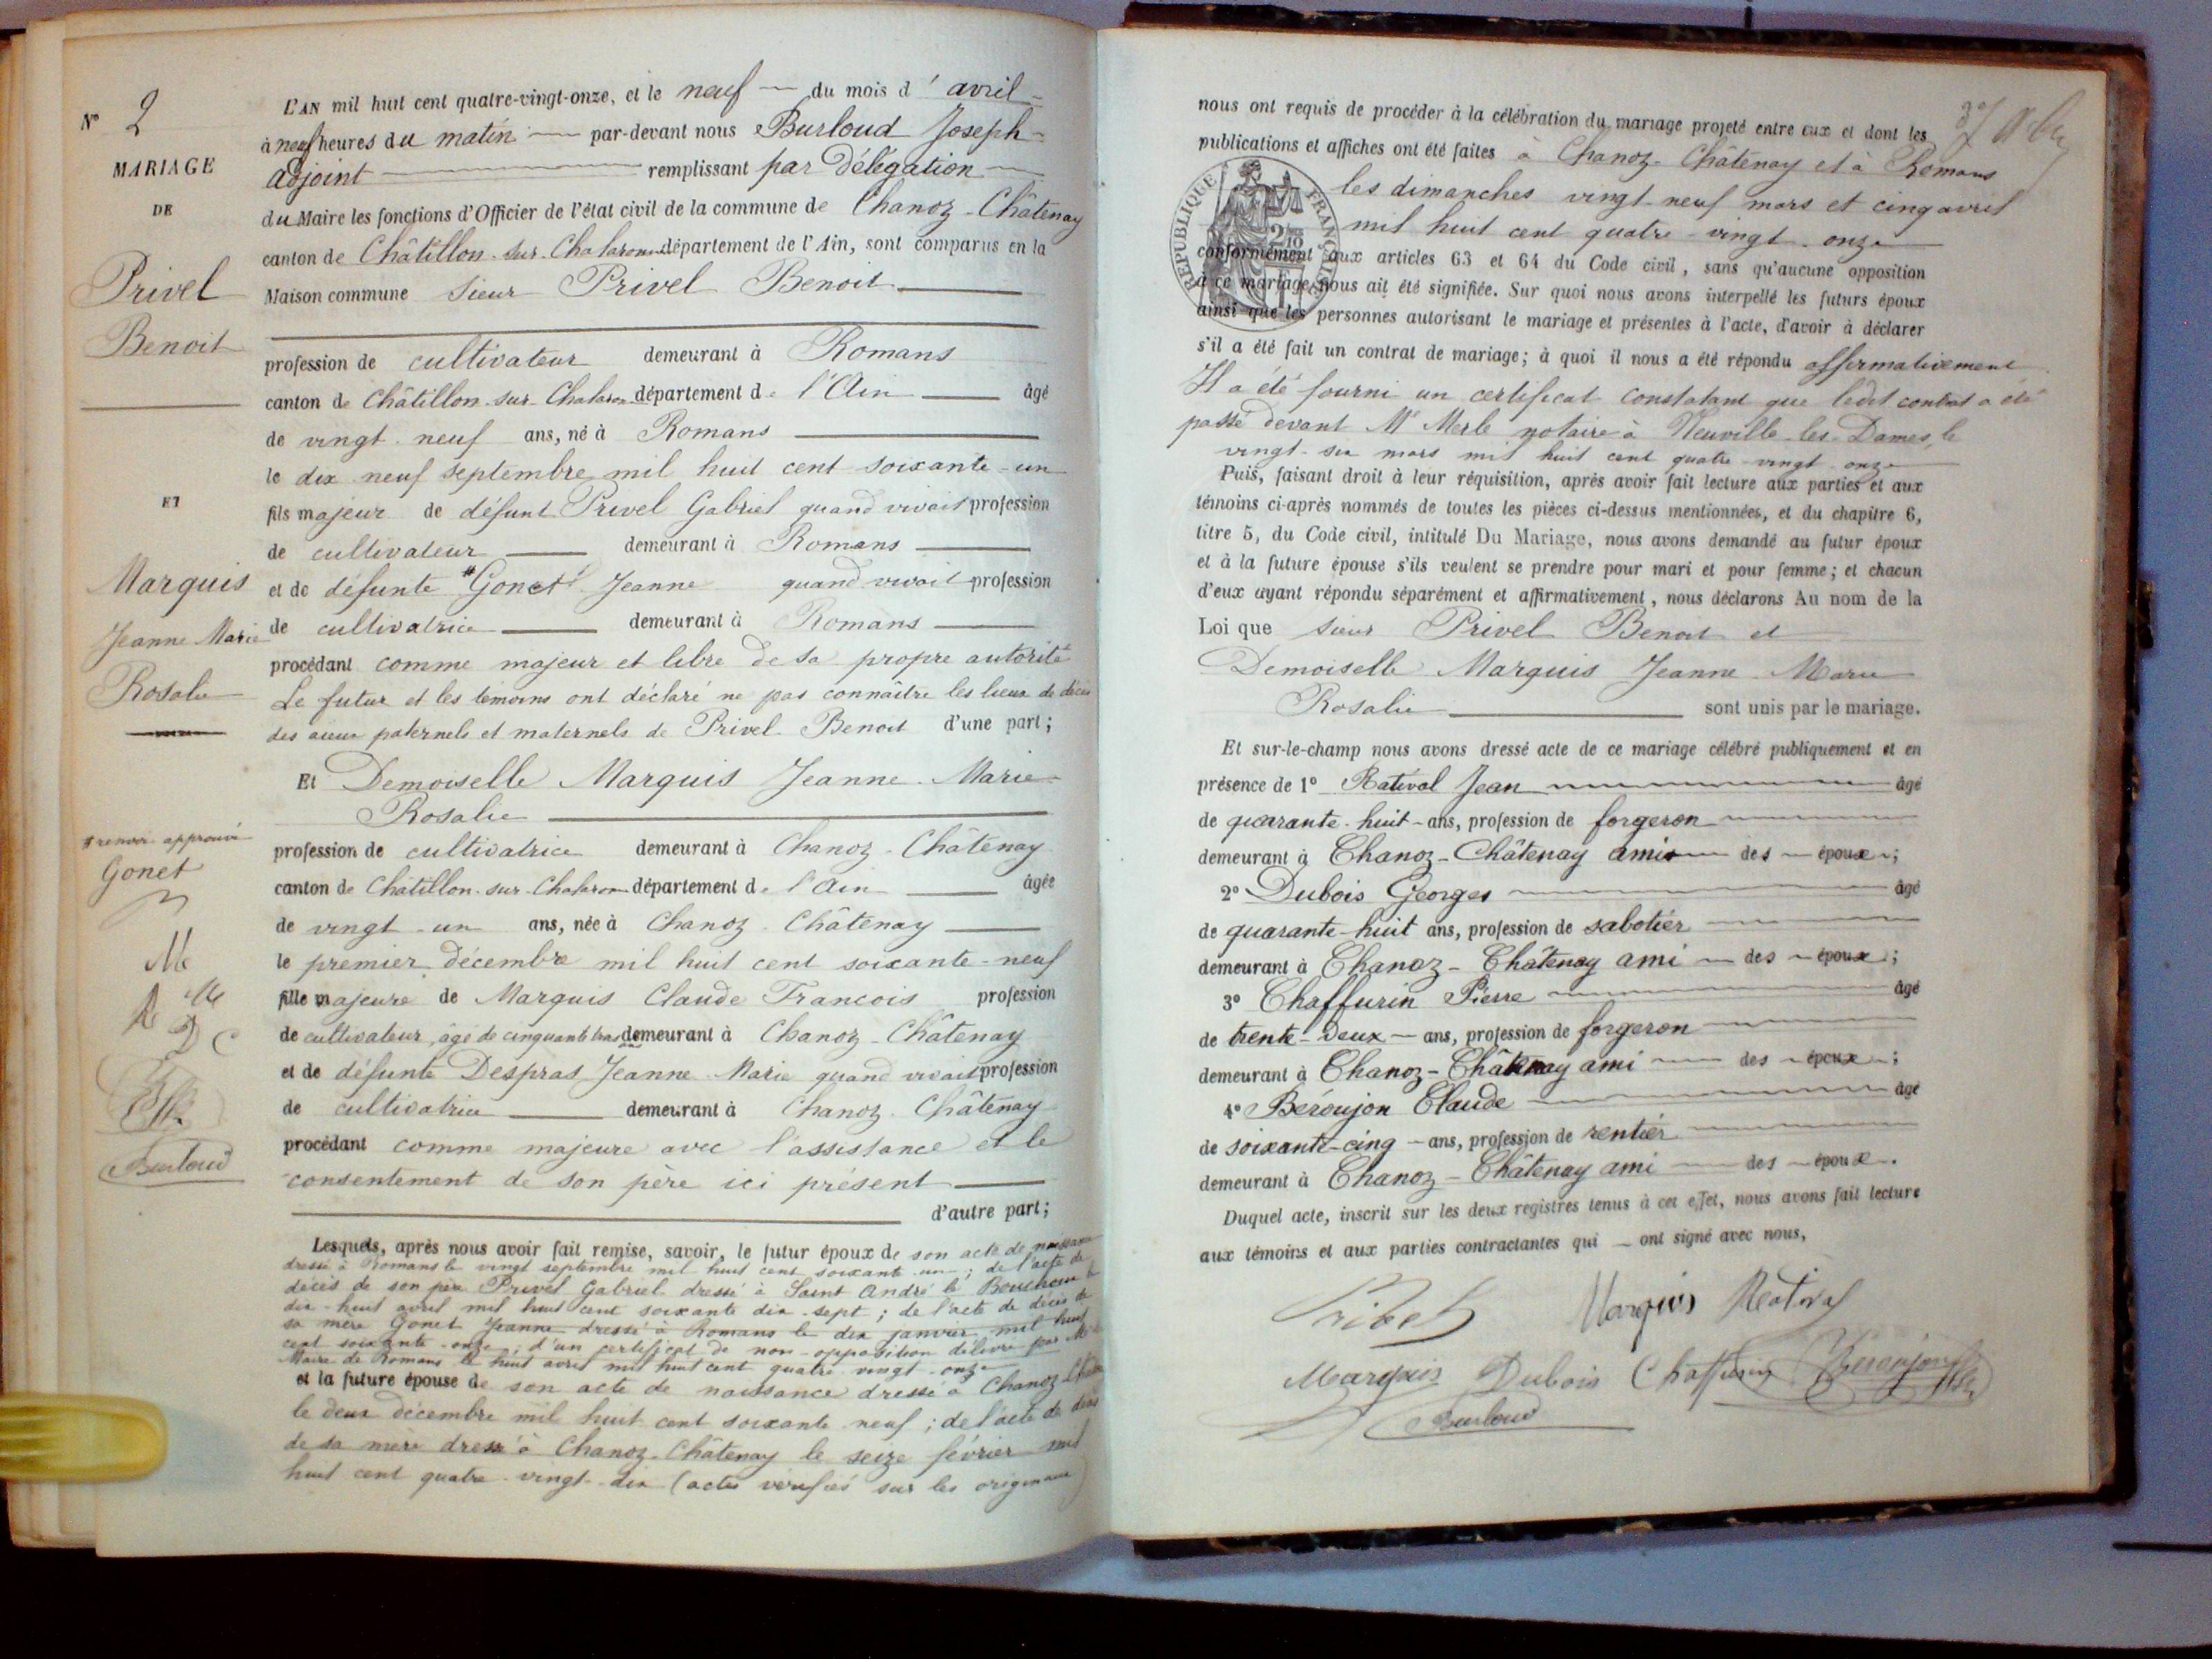 N° 2
MARIAGE
DE
Privel
Benoit
ET
Marquis
Jeanne Marie
Rosalie
# renvoi approuvé
Gonet
M
R
D C
Burloud
L'AN mil huit cent quatre-vingt-onze, et le neuf du mois d'avril
à neuf heures du matin par-devant nous Burloud Joseph
adjoint remplissant par délégation
du Maire les fonctions d'Officier de l'état civil de la commune de Chanoz-Châtenay
canton de Châtillon-sur-Chalaronne département de l'Ain, sont comparus en la
Maison commune Sieur Privel Benoit
profession de cultivateur demeurant à Romans
canton de Châtillon-sur-Chalaron département de l'Ain âgé
de vingt-neuf ans, né à Romans
le dix-neuf septembre mil huit cent soixante-un
fils majeur de défunt Privel Gabriel quand vivait profession
de cultivateur demeurant à Romans
et de défunte # Gonet Jeanne quand vivait profession
de cultivatrice demeurant à Romans
procédant comme majeur et libre de sa propre autorité
Le futur et les témoins ont déclaré ne pas connaître les lieux de décès
des aieux paternels et maternels de Privel Benoit d'une part;
Et Demoiselle Marquis Jeanne-Marie-
Rosalie
profession de cultivatrice demeurant à Chanoz-Châtenay
canton de Châtillon-sur-Chalaron département de l'Ain âgée
de vingt-un ans, née à Chanoz-Châtenay
le premier décembre mil huit cent soixante-neuf
fille majeure de Marquis Claude François profession
de cultivateur, âgé de cinquante trois ans demeurant à Chanoz-Châtenay
et de défunte Despras Jeanne-Marie quand vivait profession
de cultivatrice demeurant à Chanoz-Châtenay
procédant comme majeure avec l'assistance et le
consentement de son père ici présent
d'autre part;
Lesquels, après nous avoir fait remise, savoir, le futur époux de son acte de naissance
dressé à Romans le vingt septembre mil huit cent soixante-un; de l'acte de
décès de son père Privel Gabriel dressé à Saint André le Bouchoux le
dix-huit avril mil huit cent soixante dix-sept; de l'acte de décès de
sa mère Gonet Jeanne dressé à Romans le dix janvier mil huit
cent soixante-onze; d'un certificat de non-opposition délivré par Mr le
Maire de Romans le huit avril mil huit cent quatre-vingt-onze
et la future épouse de son acte de naissance dressé à Chanoz-Châtenay
le deux décembre mil huit cent soixante-neuf; de l'acte de décès
de sa mère dressé à Chanoz-Châtenay le seize février mil
huit cent quatre-vingt-dix (actes vérifiés sur les originaux)
nous ont requis de procéder à la célébration du mariage projeté entre eux et dont les
publications et affiches ont été faites à Chanoz-Châtenay et à Romans
les dimanches vingt-neuf mars et cinq avril
mil huit cent quatre-vingt-onze
RÉPUBLIQUE FRANÇAISE
conformément aux articles 63 et 64 du Code civil, sans qu'aucune opposition
à ce mariage nous ait été signifiée. Sur quoi nous avons interpellé les futurs époux
ainsi que les personnes autorisant le mariage et présentes à l'acte, d'avoir à déclarer
s'il a été fait un contrat de mariage; à quoi il nous a été répondu affirmativement
Il a été fourni un certificat constatant que ledit contrat a été
passé devant Me Merle notaire à Neuville-les-Dames, le
vingt-six mars mil huit cent quatre-vingt-onze
Puis, faisant droit à leur réquisition, après avoir fait lecture aux parties et aux
témoins ci-après nommés de toutes les pièces ci-dessus mentionnées, et du chapitre 6,
titre 5, du Code civil, intitulé Du Mariage, nous avons demandé au futur époux
et à la future épouse s'ils veulent se prendre pour mari et pour femme; et chacun
d'eux ayant répondu séparément et affirmativement, nous déclarons Au nom de la
Loi que sieur Privel Benoit et
Demoiselle Marquis Jeanne-Marie
Rosalie sont unis par le mariage.
Et sur-le-champ nous avons dressé acte de ce mariage célébré publiquement et en
présence de 1° Rativol Jean âgé
de quarante-huit ans, profession de forgeron
demeurant à Chanoz-Châtenay ami des époux;
2° Dubois Georges âgé
de quarante-huit ans, profession de sabotier
demeurant à Chanoz-Châtenay ami des époux;
3° Chaffurin Pierre âgé
de trente-deux ans, profession de forgeron
demeurant à Chanoz-Châtenay ami des époux;
4° Béroujon Claude âgé
de soixante-cinq ans, profession de rentier
demeurant à Chanoz-Châtenay ami des époux.
Duquel acte, inscrit sur les deux registres tenus à cet effet, nous avons fait lecture
aux témoins et aux parties contractantes qui ont signé avec nous,
Privel Marquis Rativol
Marquis Dubois Chaffurin Beroujon
Burloud